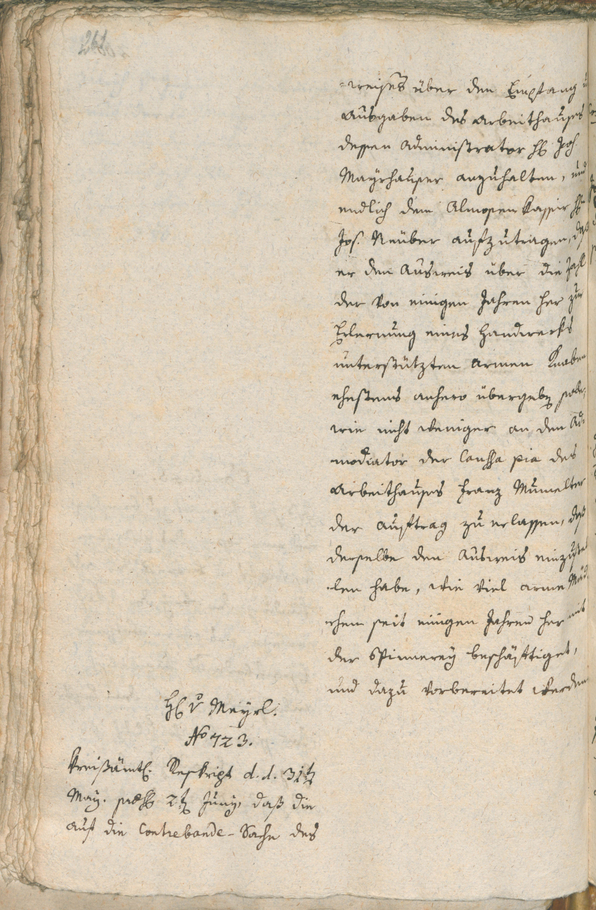 264
-weises über den Empfang
Ausgaben des Arbeithauses
dessen Administrator H Joh
Mayrhauser anzuhalten, und
endlich dem Almosen Kassir H
Jos. Neüber aufzutragen, daß
er den Ausweis über die Zahl
der von einigen Jahren her zur
Erlernung eines Handwerks
unterstützten armen Knaben
ehestens anhero übergeben solle,
wie nicht weniger an den Ad-
modiator der Caußa pia des
Arbeithauses Franz Mumelter
der Auftrag zu erlassen, daß
derselbe den Ausweis einzuse
len habe, wie viel arme Mäd
chen seit einigen Jahren her mit
der Spinnerey beschäftiget,
und dazu vorbereitet werden
H v Mayrl.
No 723.
Kreißämtl. Reskript d. d. 31t
May. 2t Juny, daß die
auf die Contrebande-Sache des